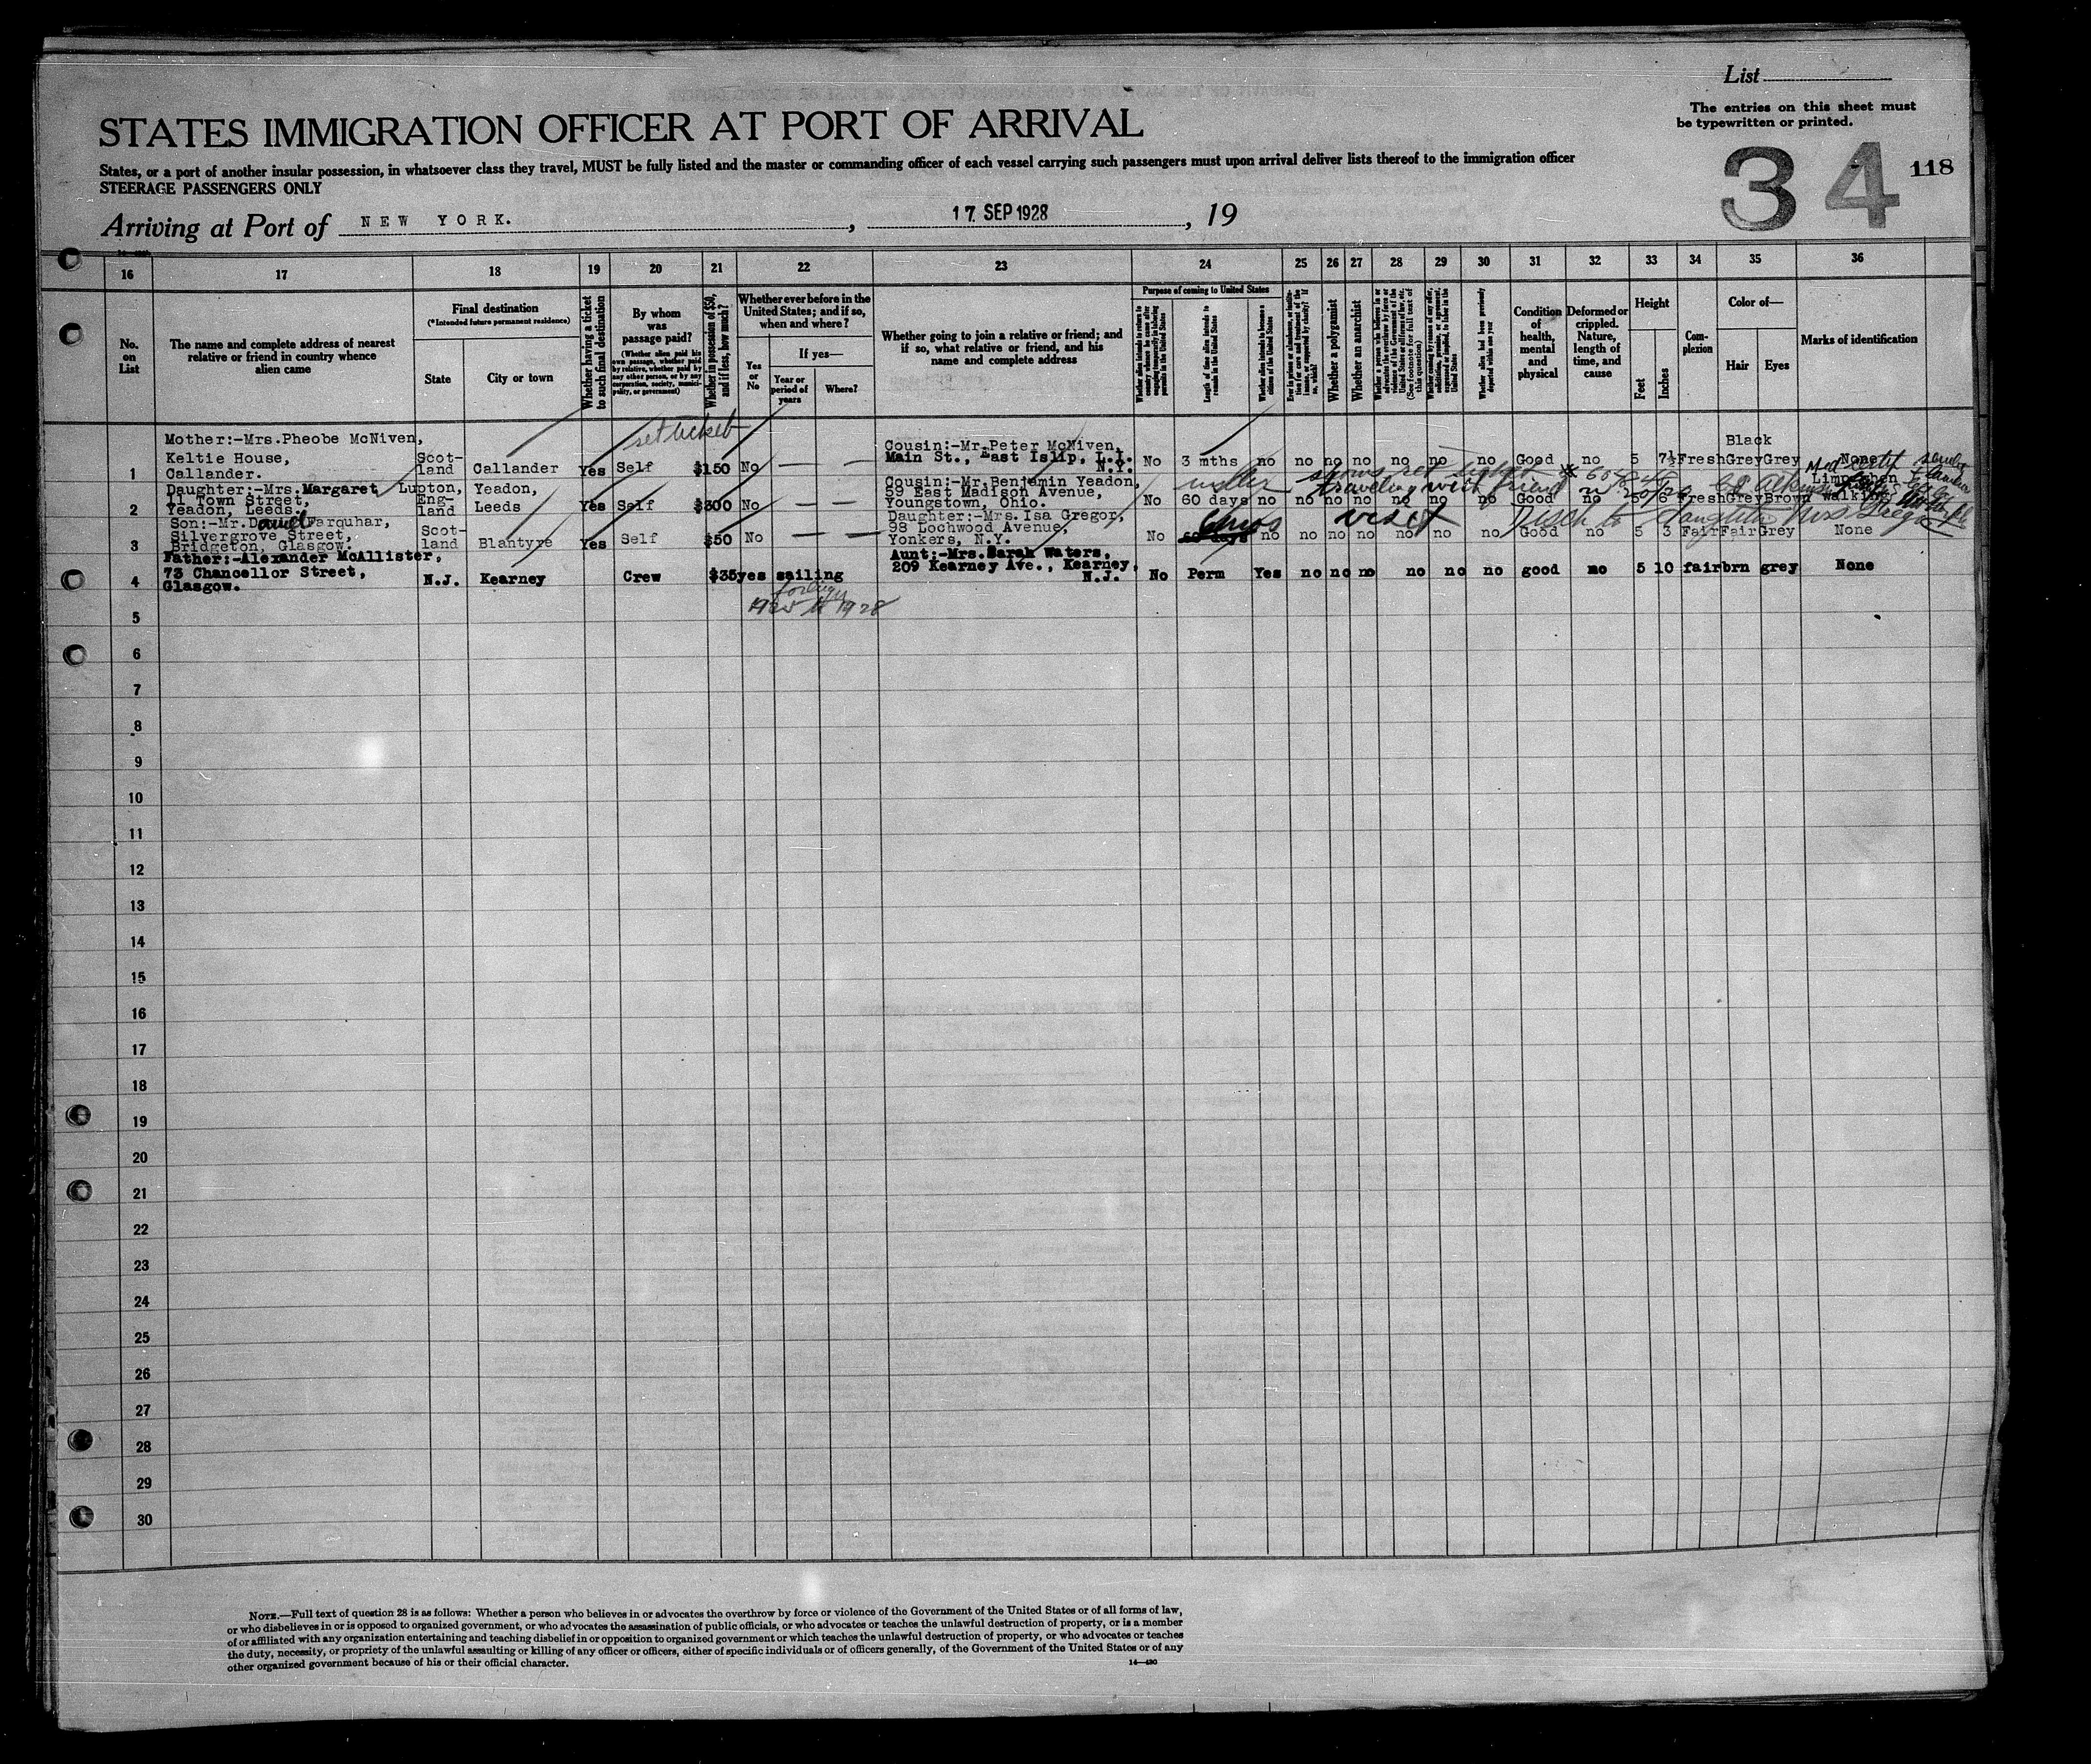 List
The entries on this sheet must
be typewritten or printed.
STATES IMMIGRATION OFFICER AT PORT OF ARRIVAL
34 118
States, or a port of another insular possession, in whatsoever class they travel, MUST be fully listed and the master or commanding officer of each vessel carrying such passengers must upon arrival deliver lists thereof to the immigration officer
STEERAGE PASSENGERS ONLY
Arriving at Port of NEW YORK. , 17 SEP 1928 , 19
16 17 18 19 20 21 22 23 24 25 26 27 28 29 30 31 32 33 34 35 36
No. on List
The name and complete address of nearest
relative or friend in country whence
alien came
Final destination
(*Intended future permanent residence)
State
City or town
Whether having a ticket
to such final destination
By whom
was
passage paid?
(Whether alien paid his
own passage, whether paid
by relative, whether paid by
any other person, or by any
corporation, society, munici-
pality, or government)
Whether in possession of $50,
and if less, how much?
Whether ever before in the
United States; and if so,
when and where?
Yes
or
No
If yes—
Year or
period of
years
Where?
Whether going to join a relative or friend; and
if so, what relative or friend, and his
name and complete address
Purpose of coming to United States
Length of time alien intends to
remain in the United States
Whether alien intends to become a
citizen of the United States
Whether a polygamist
Whether an anarchist
Whether alien had been previously
deported within one year
Condition
of
health,
mental
and
physical
Deformed or
crippled.
Nature,
length of
time, and
cause
Height
Feet
Inches
Com-
plexion
Color of—
Hair
Eyes
Marks of identification
Mother:-Mrs.Pheobe McNiven,
Keltie House,
Callander.
1 Scot-
land Callander Yes Self $150 No — —
Cousin:-Mr.Peter McNiven,
Main St., East Islip, L.I.
N.Y.
No 3 mths no no no no no no no Good no 5 7½ Fresh Black
Grey Grey None
Daughter:-Mrs.Margaret Lupton,
11 Town Street,
Yeadon, Leeds.
2 Eng-
land Yeadon,
Leeds Yes Self $300 No — —
Cousin:-Mr.Benjamin Yeadon,
59 East Madison Avenue,
Youngstown, Ohio.
No 60 days no no no no no no no Good no 5 6 Fresh Grey Brown
walking
Son:-Mr.Daniel Farquhar,
Silvergrove Street,
Bridgeton, Glasgow.
3 Scot-
land Blantyre Yes Self $50 No — —
Daughter:-Mrs.Isa Gregor,
98 Lochwood Avenue,
Yonkers, N.Y.
No 60 days 6mos no no no no no no no Good no 5 3 Fair Fair Grey None
visit
Father:-Alexander McAllister,
73 Chancellor Street,
Glasgow.
4 N.J. Kearney Crew $35 yes sailing
foreign
1925 to 1928
Aunt:-Mrs.Sarah Waters,
209 Kearney Ave., Kearney,
N.J.
No Perm Yes no no no no no no good no 5 10 fair brn grey None
5
6
7
8
9
10
11
12
13
14
15
16
17
18
19
20
21
22
23
24
25
26
27
28
29
30
NOTE.—Full text of question 28 is as follows: Whether a person who believes in or advocates the overthrow by force or violence of the Government of the United States or of all forms of law,
or who disbelieves in or is opposed to organized government, or who advocates the assassination of public officials, or who advocates or teaches the unlawful destruction of property, or is a member
of or affiliated with any organization entertaining and teaching disbelief in or opposition to organized government or which teaches the unlawful destruction of property, or who advocates or teaches
the duty, necessity, or propriety of the unlawful assaulting or killing of any officer or officers, either of specific individuals or of officers generally, of the Government of the United States or of any
other organized government because of his or their official character.
14—430